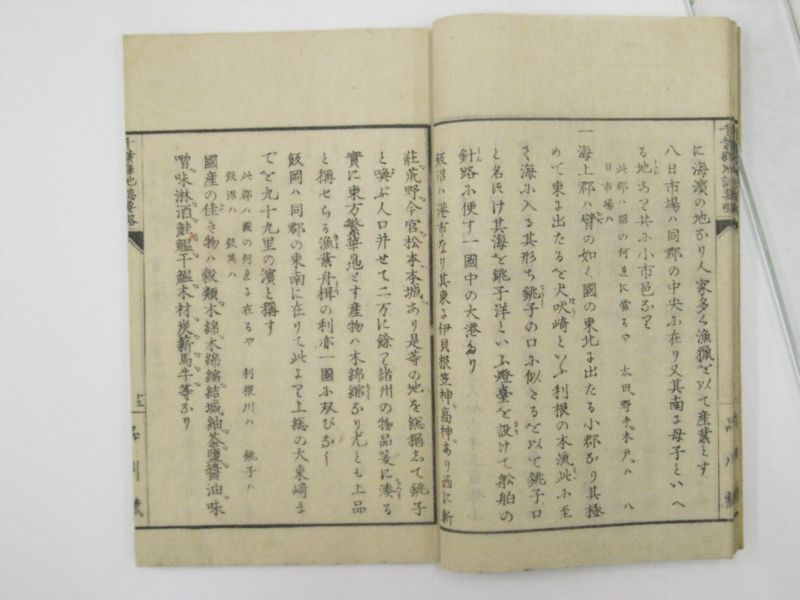 に海濱の地なり人家多く漁獵を以て産業とす
八日市場ハ同郡の中央に在り又其南に母子といへ
る地ありて共に小市邑なり
此郡ハ國の何邊に當るや 太田野手木戸ハ 八
日市場ハ
一海上郡ハ臂の如く國の東北に出たる小郡なり其極
めて東に出たるを犬吠崎といふ利根の本流此に至
て海に入る其形ち銚子の口に似たるを以て銚子口
と名にけ其海を銚子洋といふ燈臺を設けて船舶の
針路に便す一國中の大港なり
飯沼ハ港市なり其東に伊貝根笠神高神あり西に新
莊荒野今宮松本本城あり是等の地を総稱して銚子
と喚ぶ人口并せて二万に餘り諸州の物品爰に湊る
實に東方繁華の地とす産物ハ木綿縮なり尤とも上品
と稱せらる漁業舟楫の利亦一國に双びなし
飯岡ハ同郡の東南に在りて此より上総の大東崎ま
でを九十九里の濱と稱す
此郡ハ國の何邊に在るや 利根川ハ 銚子ハ
飯沼ハ 飯岡ハ
國産の佳き物ハ穀類木綿木綿縮結城紬茶鹽醬油味
噌味淋酒鮭鰮干鰮木材炭薪馬牛等なり
千葉縣地誌要略